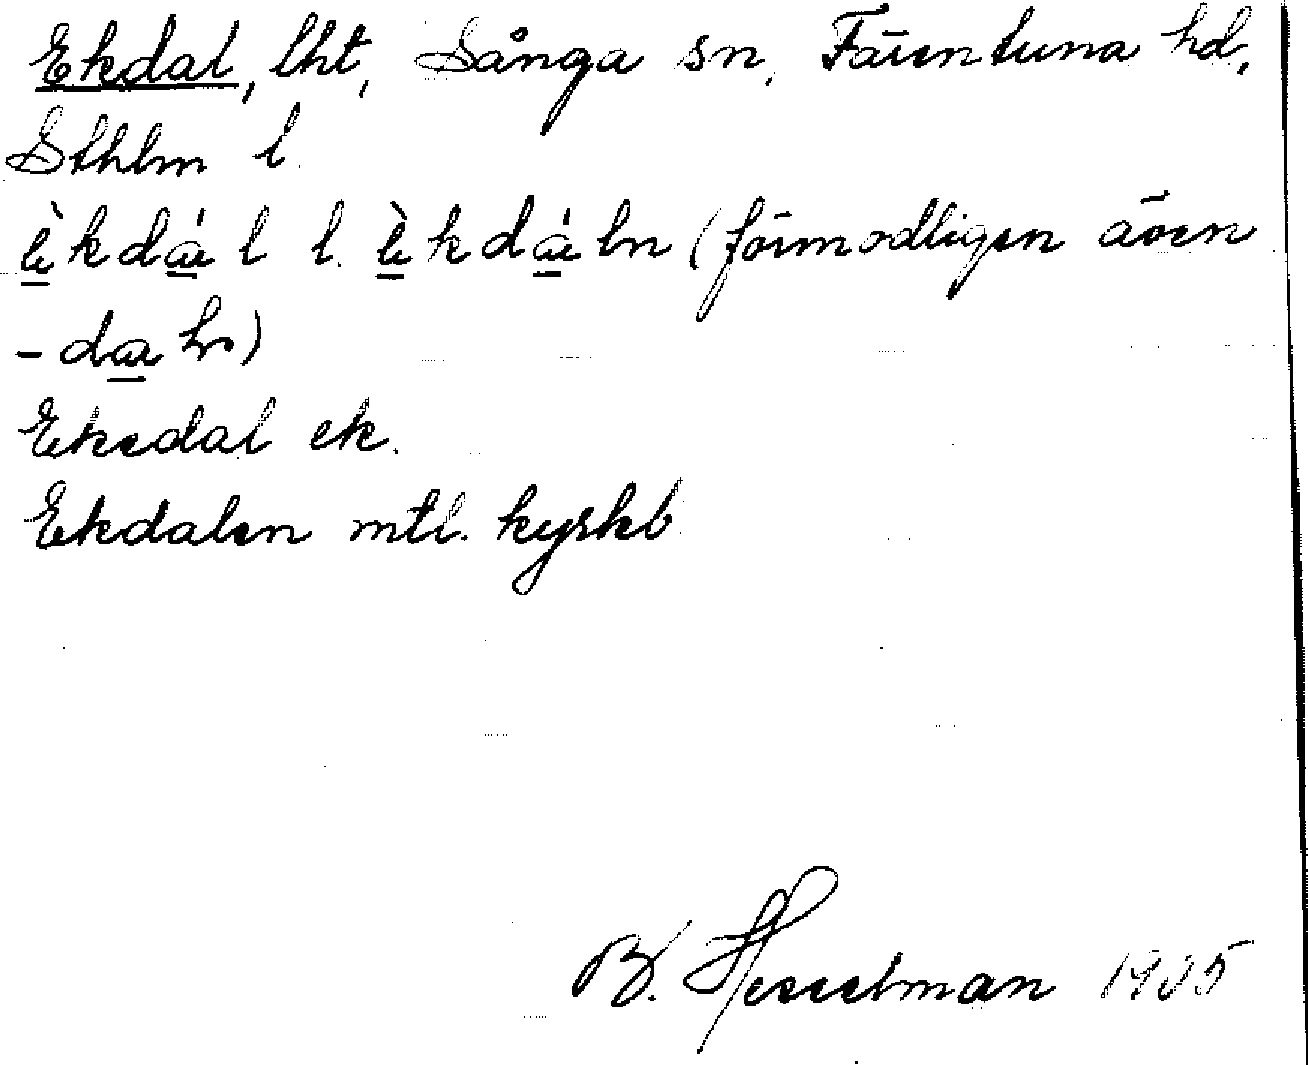 Ekdal, lht, Sånga sn, Färentuna hd,
Sthlm l.
è̱kdá̱l l. è̱kdá̱ln (förmodligen även
-da̱ln)
Ekedal ek.
Ekdalen mtl. kyrkb
B. Hesselman 1905